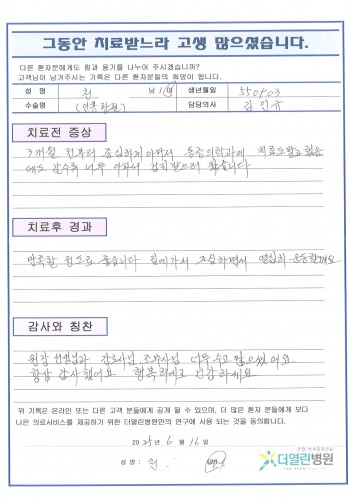 그동안 치료받느라 고생 많으셨습니다.
다른 환자분에게도 힘과 용기를 나누어 주시겠습니까?
고객님이 남겨주시는 기록은 다른 환자분들의 희망이 됩니다.
성 명 천 남/여 생년월일 550903
수술명 (인공관절) 담당의사
치료전 증상
3개월 전부터 심하게 아파서 통증의학과에 치료도받고 했
는데도 갈수록 너무 아파서 왔습니다
치료후 경과
만족할 정도로 좋습니다 집에가서 조심하면서 열심히 운동할께요
감사와 칭찬
원장 선생님과 간호사님 너무 수고 많으셨어요
항상 감사했어요 행복하시고 건강하세요
위 기록은 온라인 또는 다른 고객 분들에게 공개 될 수 있으며, 더 많은 환자 분들에게 보다
나은 의료서비스를 제공하기 위한 더열린병원만의 연구에 사용 되는 것을 동의합니다.
2025년 6월 16일
성 명: 천
더열린병원